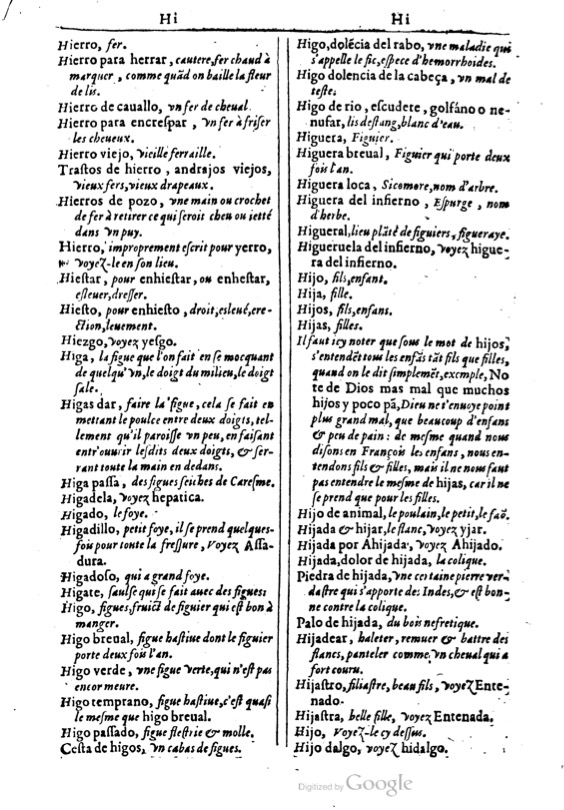 Hi
Hierro, fer.
Hierro para herrar, cautere, fer chaud à
marquer, comme quãd on baille la fleur
de lis.
Hierro de cauallo, vn fer de cheual.
Hierro para encreſpar, vn fer à friſer
les cheueux.
Hierro viejo, vieille ferraille.
Traſtos de hierro, andrajos viejos,
vieux fers, vieux drapeaux.
Hierros de pozo, vne main ou crochet
de fer à retirer ce qui ſeroit cheu ou ietté
dans vn puy.
Hierro, improprement eſcrit pour yerro,
voyeZ-le en ſon lieu.
Hieſtar, pour enhieſtar, ou enheſtar,
eſleuer, dreſſer.
Hieſto, pour enhieſto, droit, esleué, ere-
ction, leuement.
Hiezgo, voyez yeſgo.
Higa, la figue que l'on fait en ſe mocquant
de quelqu'vn, le doigt du milieu, le doigt
ſale.
Higas dar, faire la figue, cela ſe fait en
mettant le poulce entre deux doigts, tel-
lement qu'il paroiſſe vn peu, en faiſant
entr'ouurir leſdits deux doigts, & ſer-
rant toute la main en dedans.
Higa paſſa, des figues ſeiches de Careſme.
Higadela, voyez hepatica.
Higado, le foye.
Higadillo, petit foye, il ſe prend quelques-
fois pour toute la freſſure, Voyez Aſſa-
dura.
Higadoſo, qui a grand foye.
Higate, ſaulſe qui ſe fait auec des figues:
Higo, figues, fruict de figuier qui eſt bon à
manger.
Higo breual, figue haſtiue dont le figuier
porte deux fois l'an.
Higo verde, vne figue verte, qui n'eſt pas
encor meure.
Higo temprano, figue haſtiue, c'eſt quaſi
le meſme que higo breual.
Higo paſſado, figue fleſtrie & molle.
Ceſta de higos, vn cabas de figues.
Hi
Higo, dolẽcia del rabo, vne maladie qui
s'appelle le fic, eſpece d'hemorrhoides.
Higo dolencia de la cabeça, vn mal de
teſte.
Higo de rio, eſcudete, golfáno o ne-
nufar, lis deſtang, blanc d'eau.
Higuera, Figuier.
Higuera breual, Figuier qui porte deux
fois l'an.
Higuera loca, Sicomore, nom d'arbre.
Higuera del infierno, Eſpurge, nom
d'herbe.
Higueral, lieu plãté de figuiers, figueraye.
Higueruela del infierno, voyez higue-
ra del infierno.
Hijo, fils, enfant.
Hija, fille.
Hijos, fils, enfans.
Hijas, filles.
Il faut icy noter que ſous le mot de hijos,
s'entendẽt tous les enfãs tãt fils que filles,
quand on le dit ſimplemẽt, exemple, No
te de Dios mas mal que muchos
hijos y poco pã, Dieu ne t'enuoye point
plus grand mal, que beaucoup d'enfans
& peu de pain: de meſme quand nous
diſons en François les enfans, nous en-
tendons fils & filles, mais il ne nous faut
pas entendre le meſme de hijas, car il ne
ſe prend que pour les filles.
Hijo de animal, le poulain, le petit, le faõ.
Hijada & hijar, le flanc, voyez yjar.
Hijada por Ahijada, voyez Ahijado.
Hijada, dolor de hijada, la colique.
Piedra de hijada, vne certaine pierre ver-
daſtre qui s'apporte des Indes, & eſt bon-
ne contre la colique.
Palo de hijada, du bois nefretique.
Hijadear, haleter, remuer & battre des
flancs, panteler comme vn cheual qui a
fort couru.
Hijaſtro, filiaſtre, beau fils, voyeZ Ente-
nado.
Hijaſtra, belle fille, voyez Entenada.
Hijo, VoyeZ-le cy deſſus.
Hijo dalgo, voyeZ hidalgo.
Digitized by Google